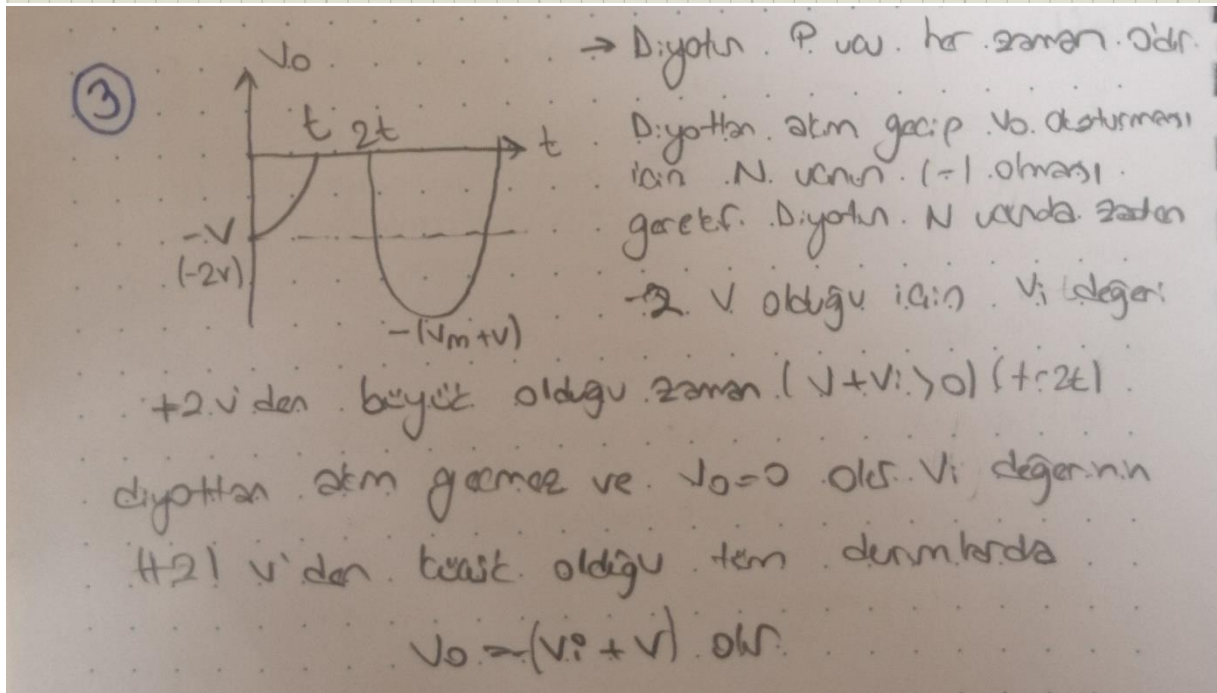 ③
Vo
t 2t
t
-V
(-2V)
-(Vm+V)
→ Diyotun P ucu her zaman 0'dır.
Diyottan akım geçip Vo oluşturması
için N ucunun (-) olması
gerekir. Diyotun N ucunda zaten
-2 V olduğu için Vi değeri
+2 V'den büyük olduğu zaman (V+Vi>0) (t-2t)
diyottan akım geçmez ve Vo=0 olur. Vi değerinin
(+2) V'den küçük olduğu tüm durumlarda
Vo=-(Vi+V) olur.